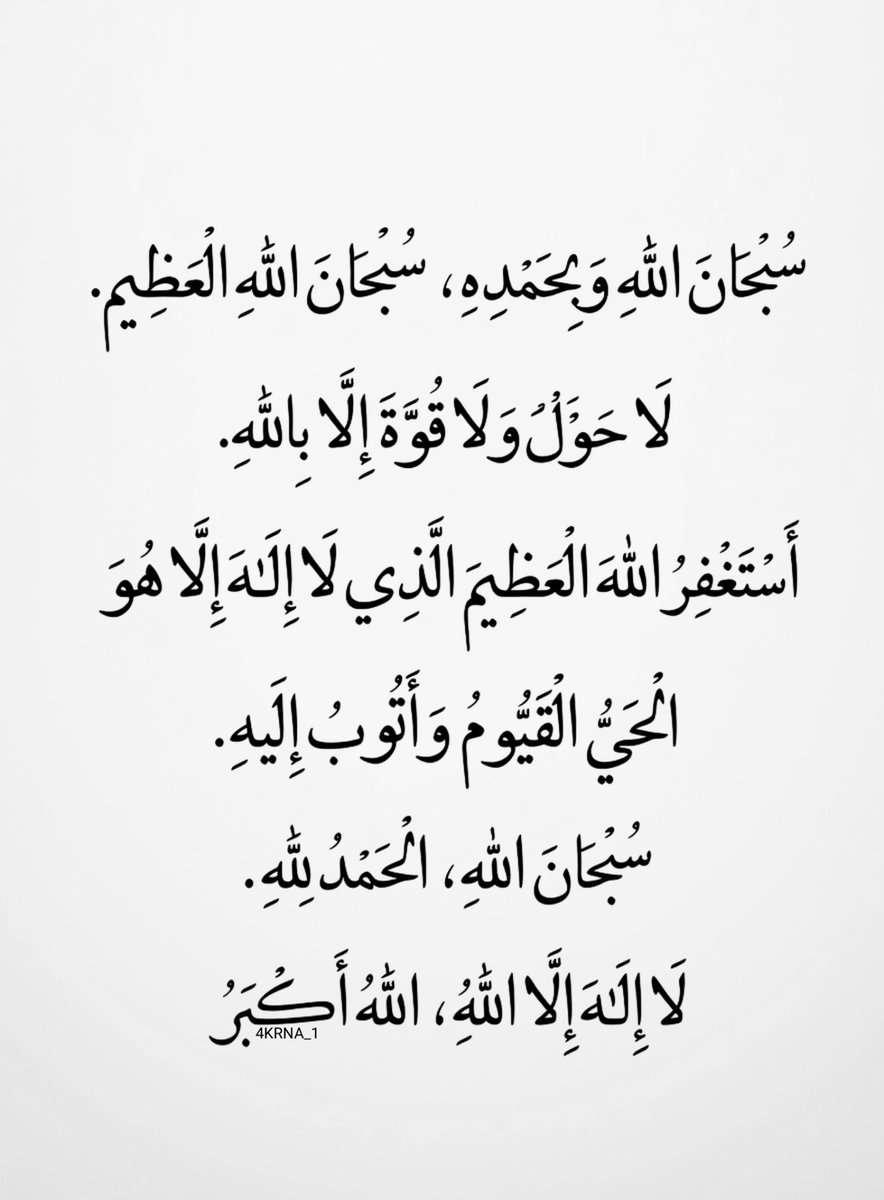 سُبْحَانَ اللّٰهِ وَبِحَمْدِهِ، سُبْحَانَ اللّٰهِ الْعَظِيمِ.
لَا حَوْلَ وَلَا قُوَّةَ إِلَّا بِاللّٰهِ.
أَسْتَغْفِرُ اللّٰهَ الْعَظِيمَ الَّذِي لَا إِلَـٰهَ إِلَّا هُوَ
الْحَيُّ الْقَيُّومُ وَأَتُوبُ إِلَيهِ.
سُبْحَانَ اللّٰهِ، الْحَمْدُ لِلّٰهِ.
لَا إِلَـٰهَ إِلَّا اللّٰهُ، اللّٰهُ أَكْبَرُ
4KRNA_1